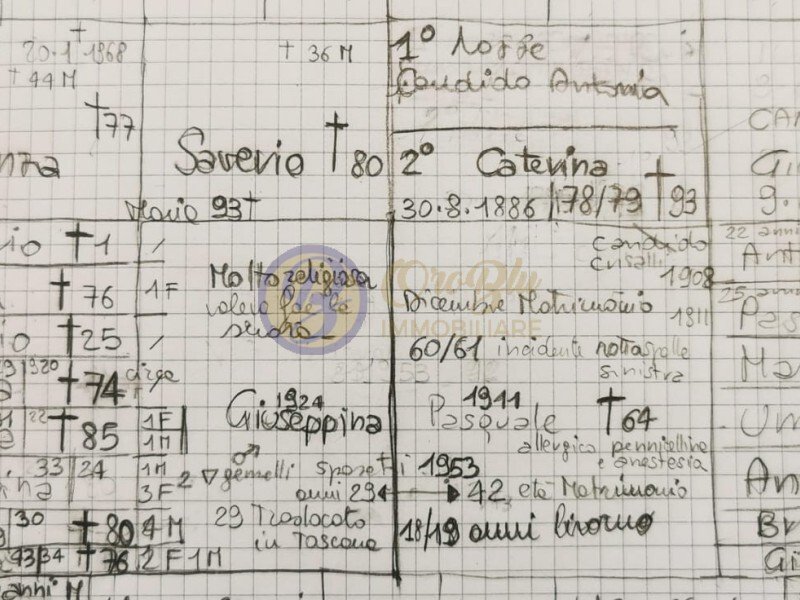 20.1 1868
† 44 M
† 77
nza
† 36 M
Saverio † 80
93 †
1° Nozze
Candido Antonia
2° Caterina
30.8.1886 178/79 † 93
CAN
Gi
9.
io † 1 /
† 76 1F
io † 25 /
1920 † 74 circa
22 † 85 1F
1M
33 24 1M
ina 3F 2
30 † 80 4M
43 34 † 76 2F 1M
anni M
Molto religiosa
voleva farsi
suora
OroBlu
IMMOBILIARE
1924
Giuseppina
gemelli sposati 1953
anni 29 42 età Matrimonio
29 Traslocato
in Toscana
18/19 anni
candido
1908
Dicembre Matrimonio 1811
60/61 incidente
sinistra
1911
Pasquale † 64
allergico pennicillina
e anestesia
22 anni
Ant
25 anni
Pas
Ma
Um
An
Br
Gi